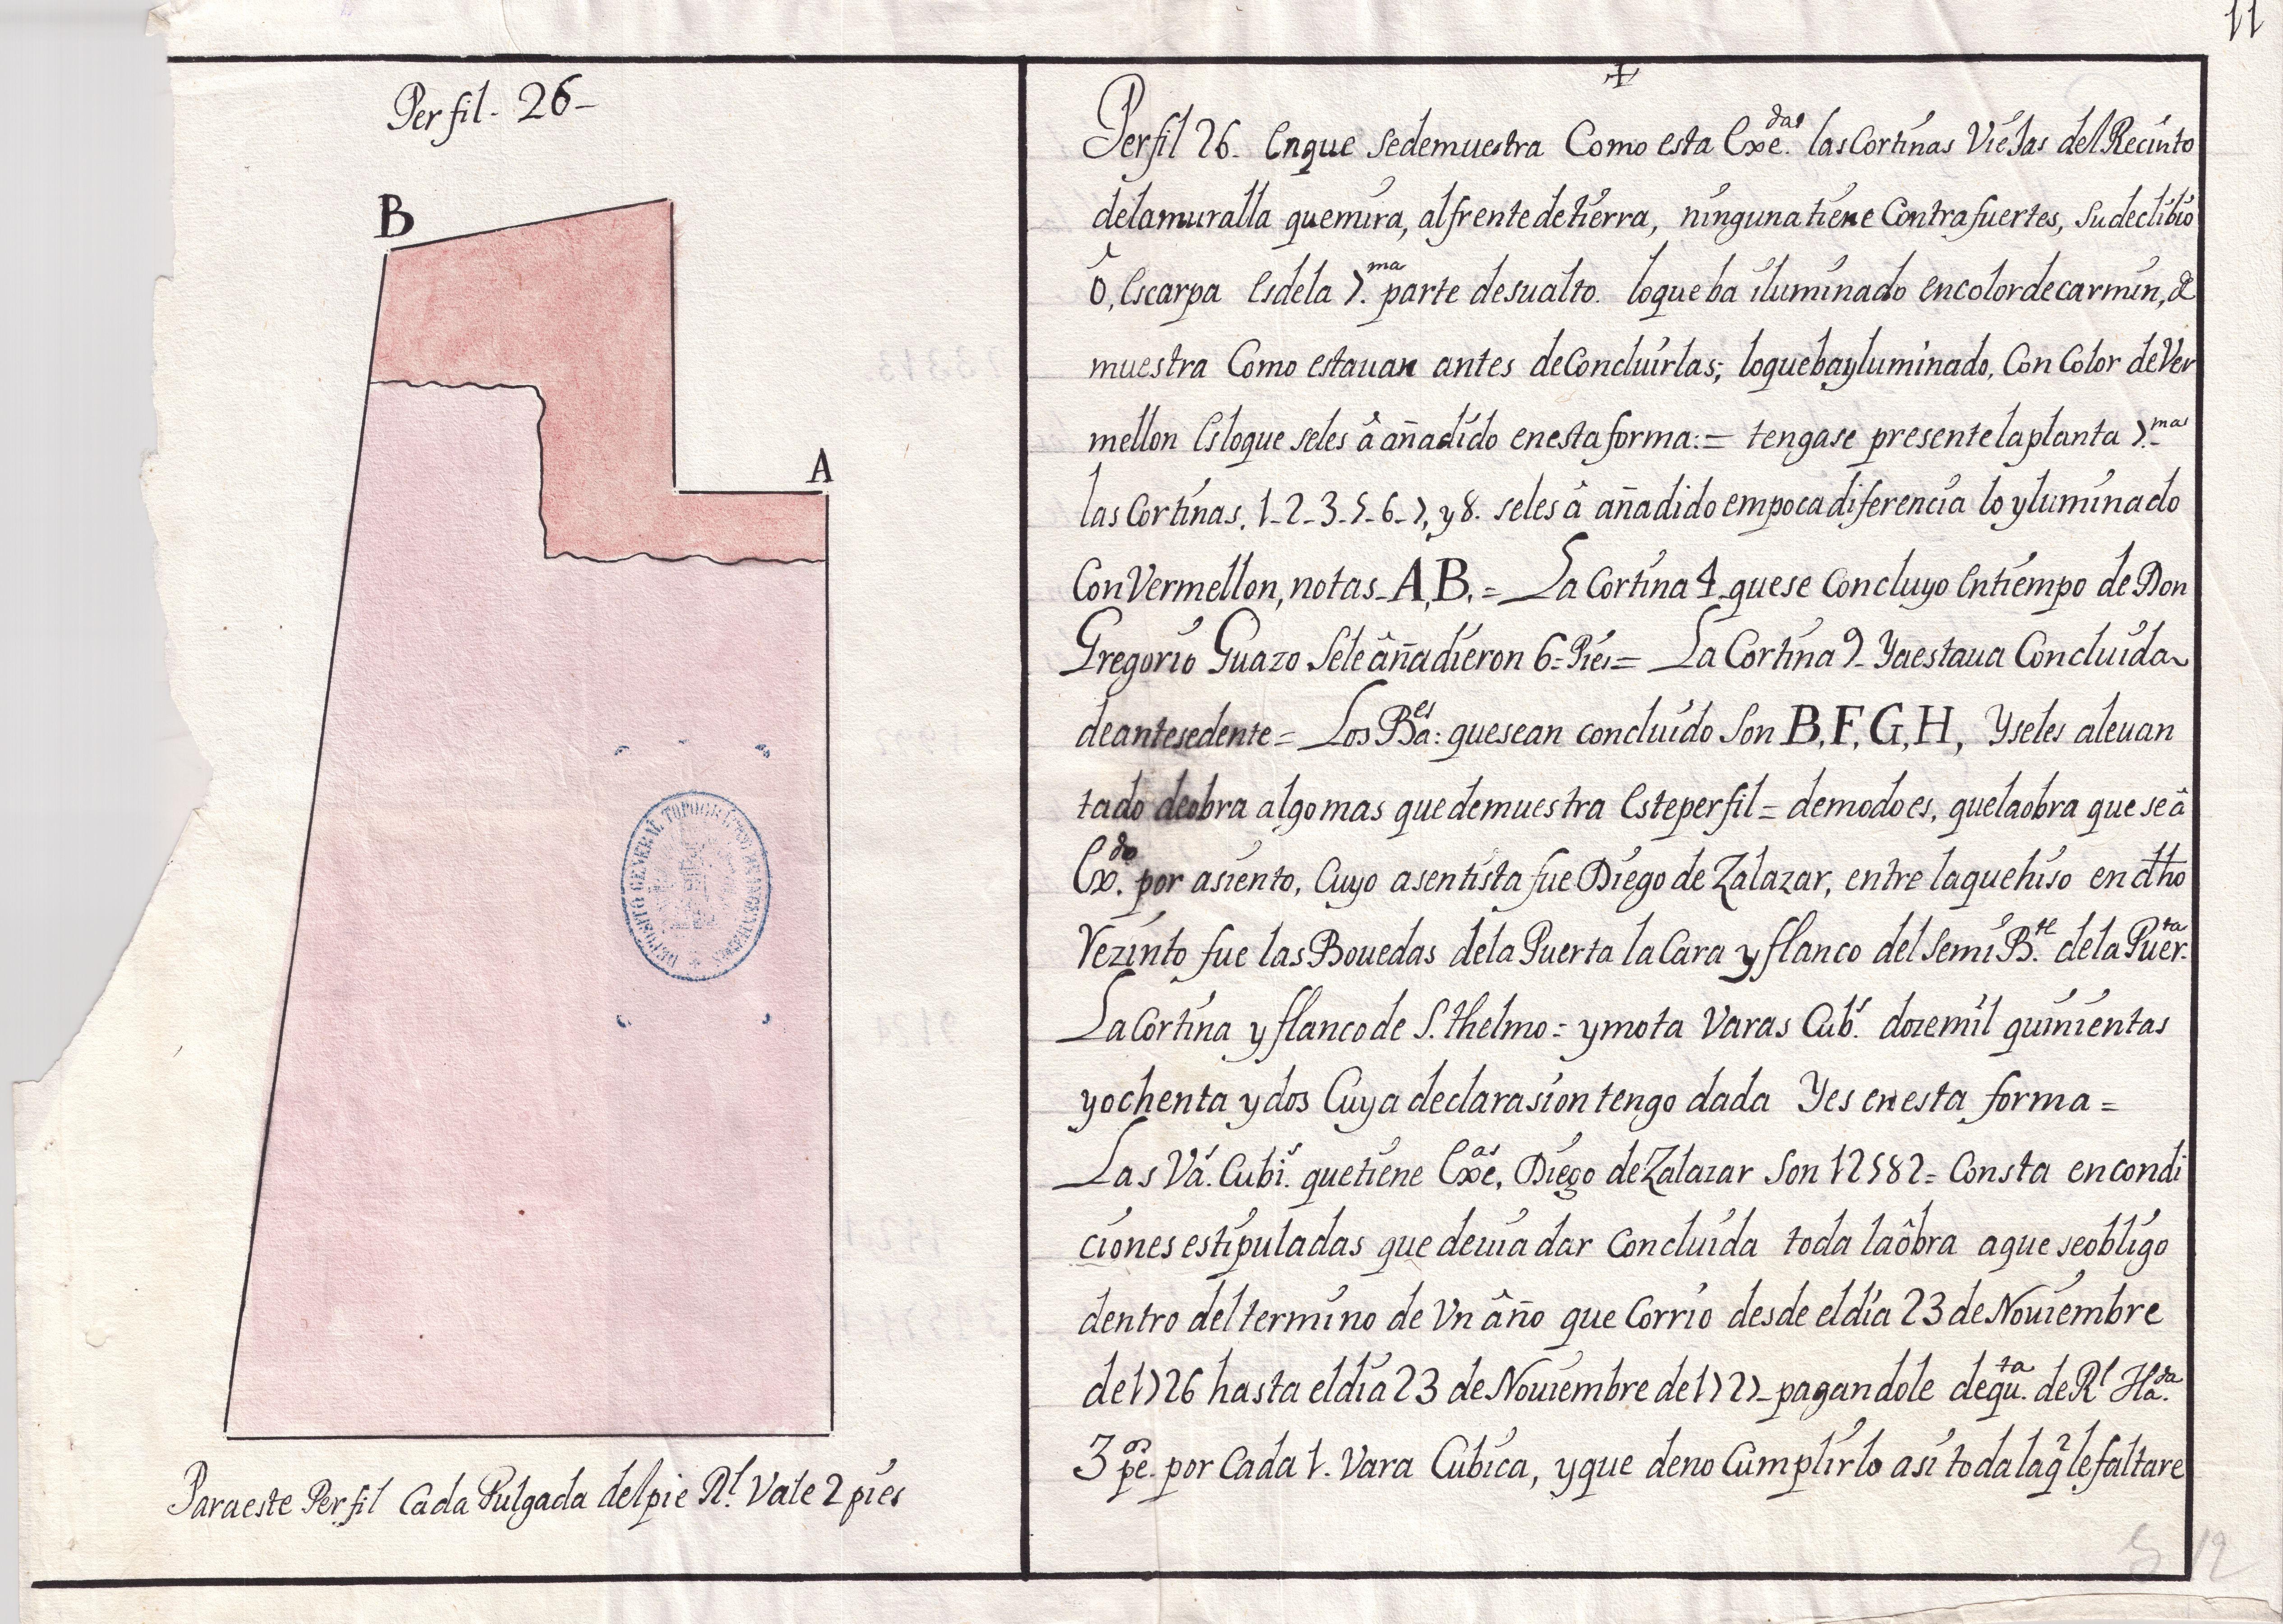 11
Perfil - 26-
B
A
DEPOSITO GENERAL TOPOGRAFICO DE INGENIEROS
Para este Perfil Cada Pulgada del pie Rl. Vale 2 pies
+
Perfil 26. Enque Sedemuestra Como esta Exe.das las Cortinas Viesas del Recinto
dela muralla que mira, al frente de tierra, ninguna tiene Contrafuertes, Su declibio
ô, Escarpa Es dela 7.ma parte de su alto. loque ba iluminado en color de carmin, de
muestra Como estauan antes de Concluirlas; loque ba yluminado, Con Color de Ver
mellon Es loque seles â añadido en esta forma:= tengase presente la planta 7.ma
las Cortinas, 1-2-3-5-6-7, y 8. seles â añadido em poca diferencia lo yluminado
Con Vermellon, notas - A, B. = La Cortina 4 - que se Concluyo En tiempo de Don
Gregorio Guazo Sele âñadieron 6= Pies = La Cortina 9- Ya estaua Concluida
de antesedente = Los Ba.es: que sean concluido Son B, F, G, H, Y seles aleuan
tado de obra algo mas que demuestra Este perfil = demodo es, que la obra que se â
Ex.do por asiento, Cuyo asentista fue Diego de Zalazar, entre la que hiso en dho
Rezinto fue las Bouedas de la Puerta la Cara y flanco del Semi B.te de la Puer.ta
La Cortina y flanco de S. thelmo = y mota Varas Cub.s doze mil quinientas
y ochenta y dos Cuya declarasion tengo dada Y es en esta forma =
Las Va.s Cubi.s que tiene Exe.as Diego de Zalazar Son 12582 = Consta en condi
ciones estipuladas que deuia dar Concluida toda la ôbra a que se obligo
dentro del termino de Vn âño que Corrio desde el dia 23 de Nouiembre
de 1726 hasta el dia 23 de Nouiembre de 1727 - pagandole de qu.ta de Rl Ha.da
3 pe.os por Cada 1. Vara Cubica, y que de no Cumplirlo asi toda la q.e le faltare
12